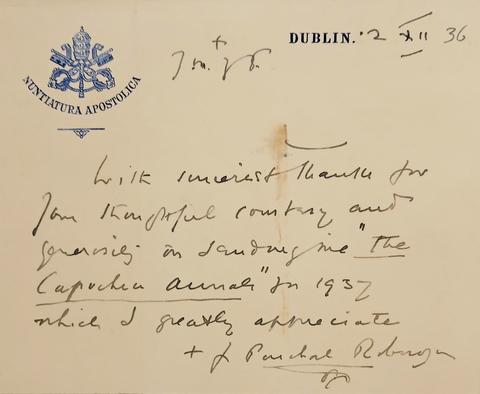 NUNTIATURA APOSTOLICA
DUBLIN. 2 XII 36
With sincerest thanks for
your thoughtful courtesy and
generosity in sending me "The
Capuchin Annual" for 1937
which I greatly appreciate
+ fr Paschal Robinson